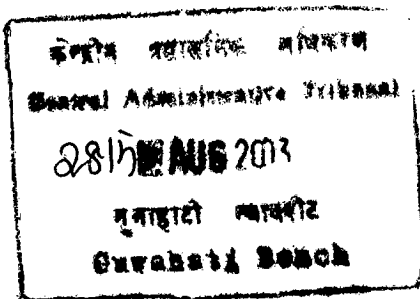 केन्द्रीय प्रशासनिक अधिकरण
Central Administrative Tribunal
AUG 2013
गुवाहाटी न्यायपीठ
Guwahati Bench